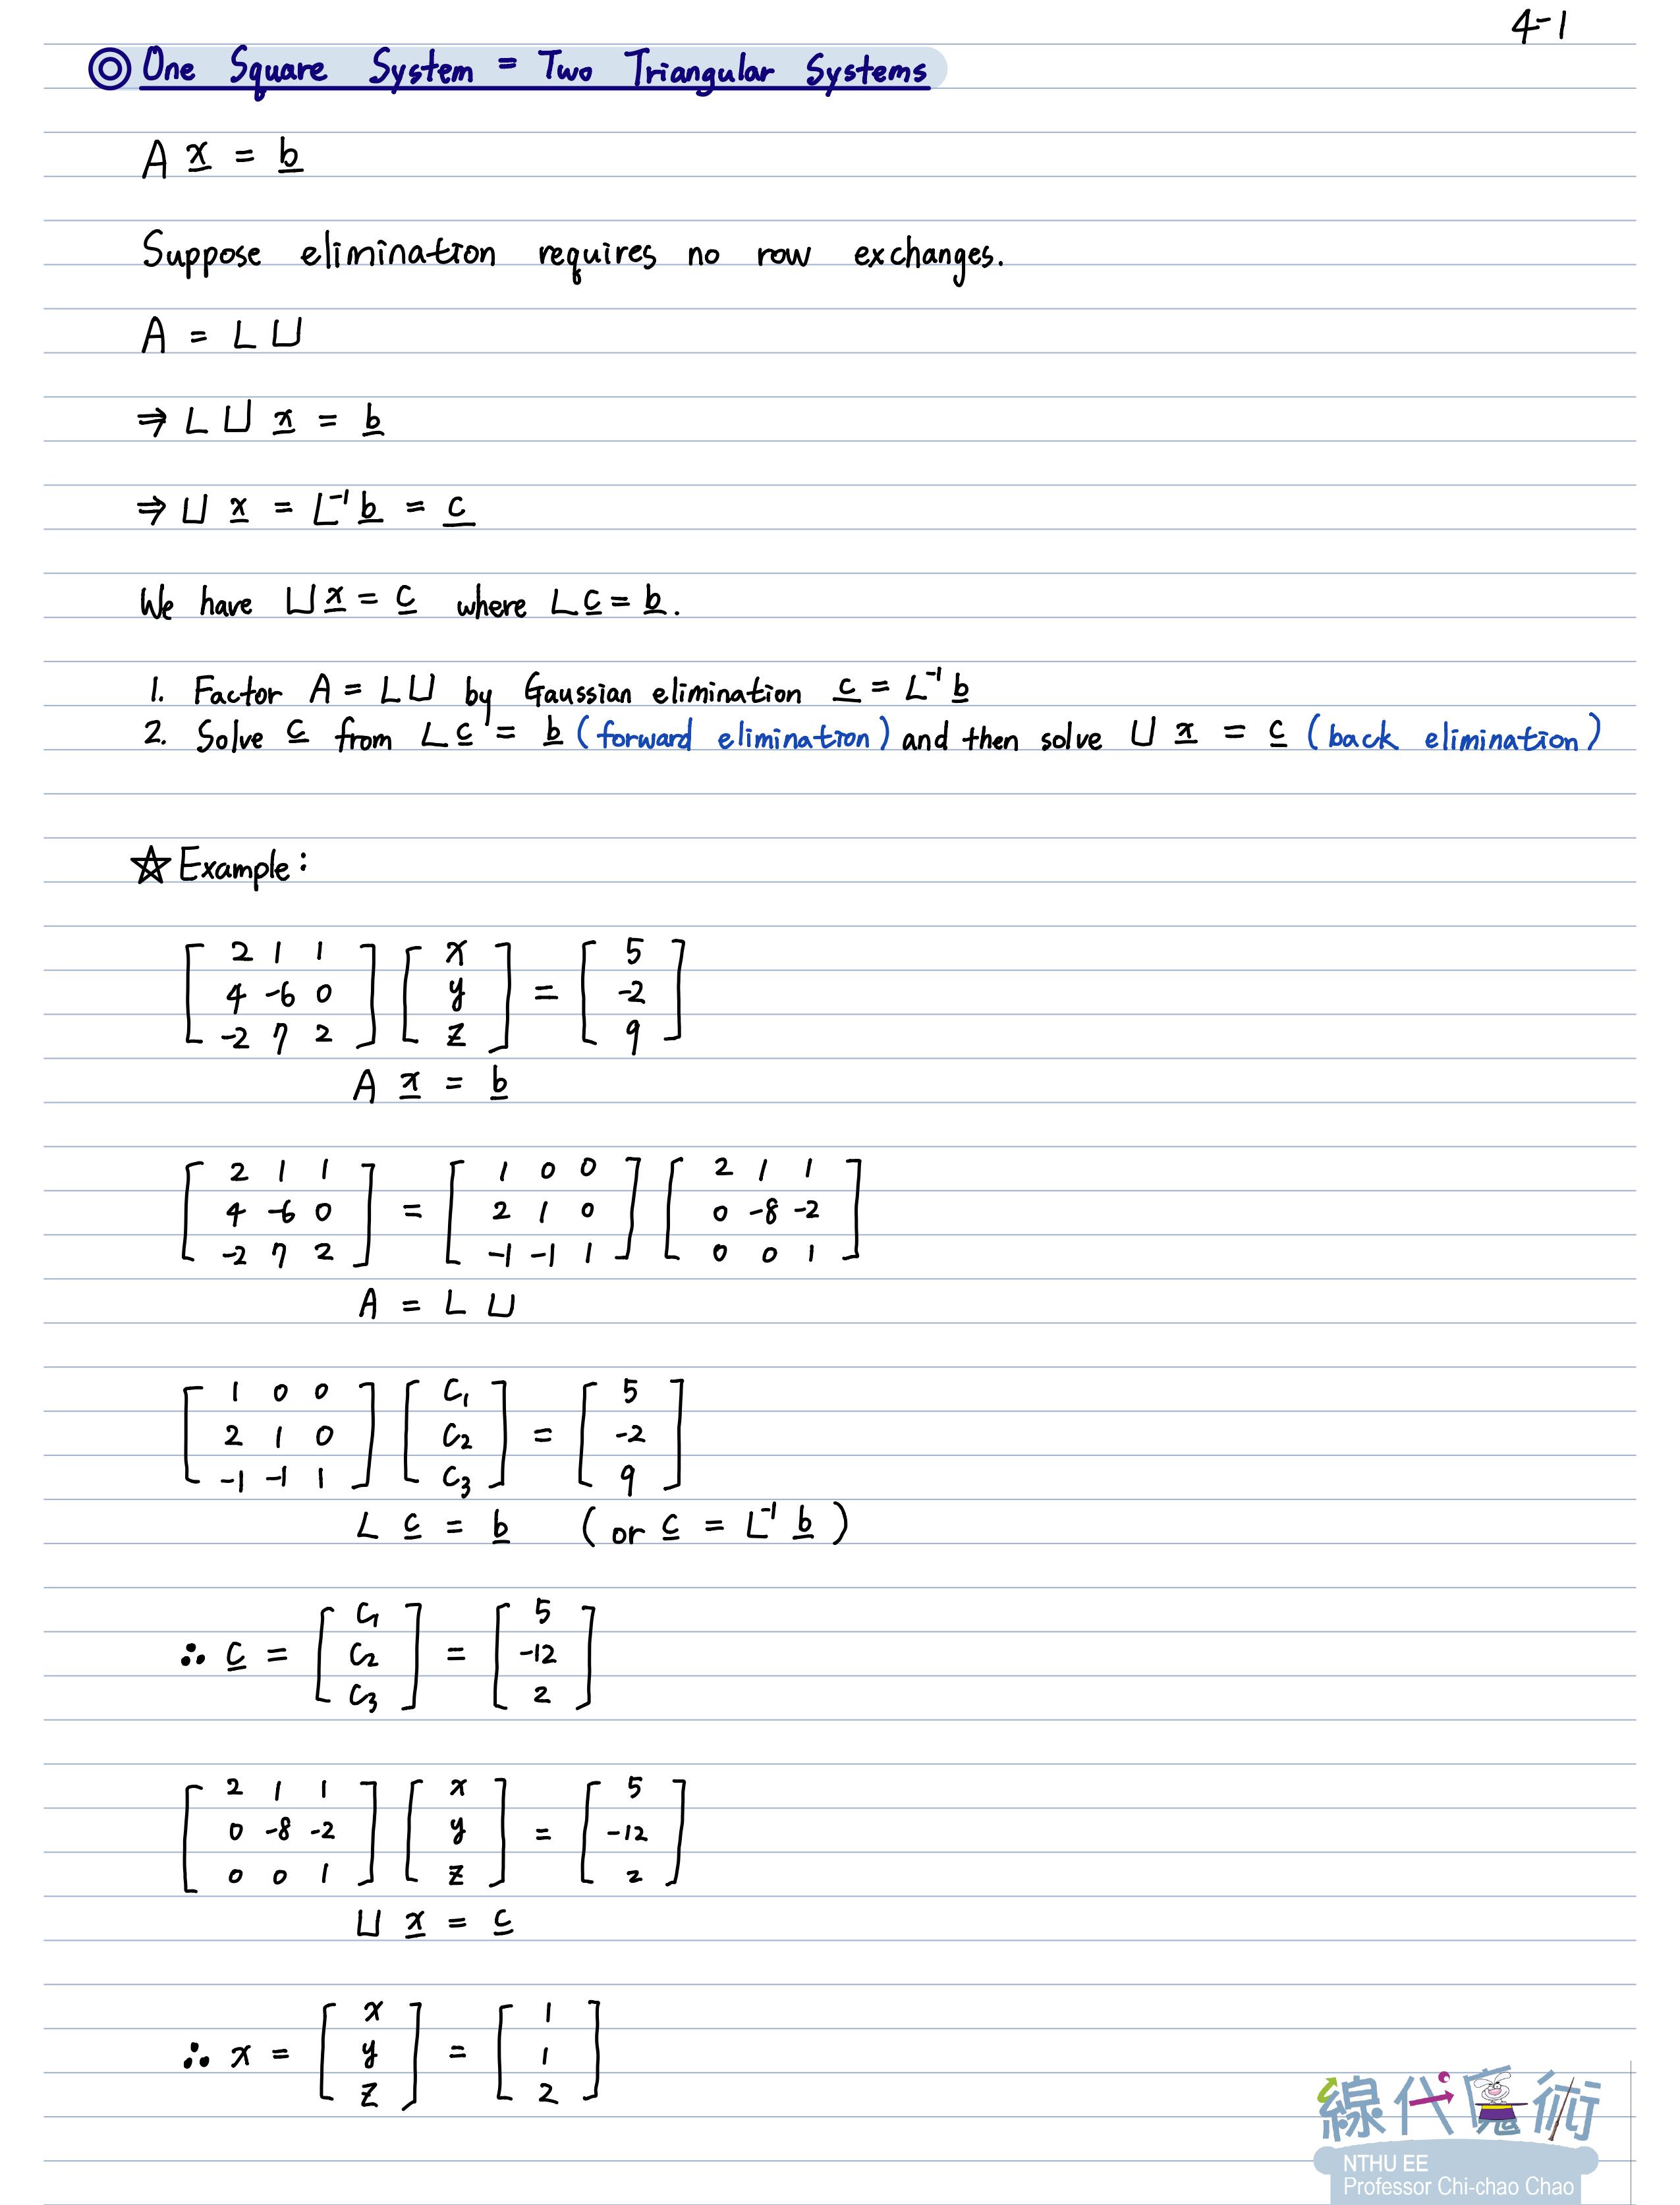 4-1
◎ One Square System = Two Triangular Systems
A x = b
Suppose elimination requires no row exchanges.
A = L U
⇒ L U x = b
⇒ U x = L⁻¹ b = c
We have U x = c where L c = b.
1. Factor A = L U by Gaussian elimination c = L⁻¹ b
2. Solve c from L c = b (forward elimination) and then solve U x = c (back elimination)
☆ Example:
[ 2 1 1 ] [ x ] = [ 5 ]
[ 4 -6 0 ] [ y ] [ -2 ]
[ -2 7 2 ] [ z ] [ 9 ]
A x = b
[ 2 1 1 ] = [ 1 0 0 ] [ 2 1 1 ]
[ 4 -6 0 ] [ 2 1 0 ] [ 0 -8 -2 ]
[ -2 7 2 ] [ -1 -1 1 ] [ 0 0 1 ]
A = L U
[ 1 0 0 ] [ C₁ ] = [ 5 ]
[ 2 1 0 ] [ C₂ ] [ -2 ]
[ -1 -1 1 ] [ C₃ ] [ 9 ]
L c = b (or c = L⁻¹ b)
∴ c = [ C₁ ] = [ 5 ]
[ C₂ ] [ -12 ]
[ C₃ ] [ 2 ]
[ 2 1 1 ] [ x ] = [ 5 ]
[ 0 -8 -2 ] [ y ] [ -12 ]
[ 0 0 1 ] [ z ] [ 2 ]
U x = c
∴ x = [ x ] = [ 1 ]
[ y ] [ 1 ]
[ z ] [ 2 ]
線代魔術
NTHU EE
Professor Chi-chao Chao